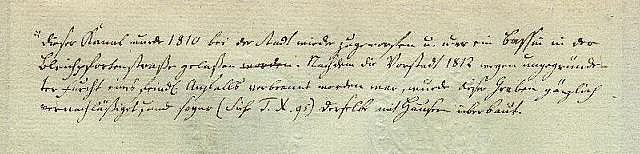 "Dieser Kanal wurde 1810 bei der Stadt wieder zugeworfen u. nur ein Bassin in der
Bleichpfortenstraße gelassen worden. Nachdem die Vorstadt 1812 wegen ungegründe-
ter Furcht eines feindl. Anfalls verbrennt worden war, wurde dieser Graben gänzlich
vernachläßiget, und sogar (Siehe T. X. 95) derselbe mit Häusern überbaut.